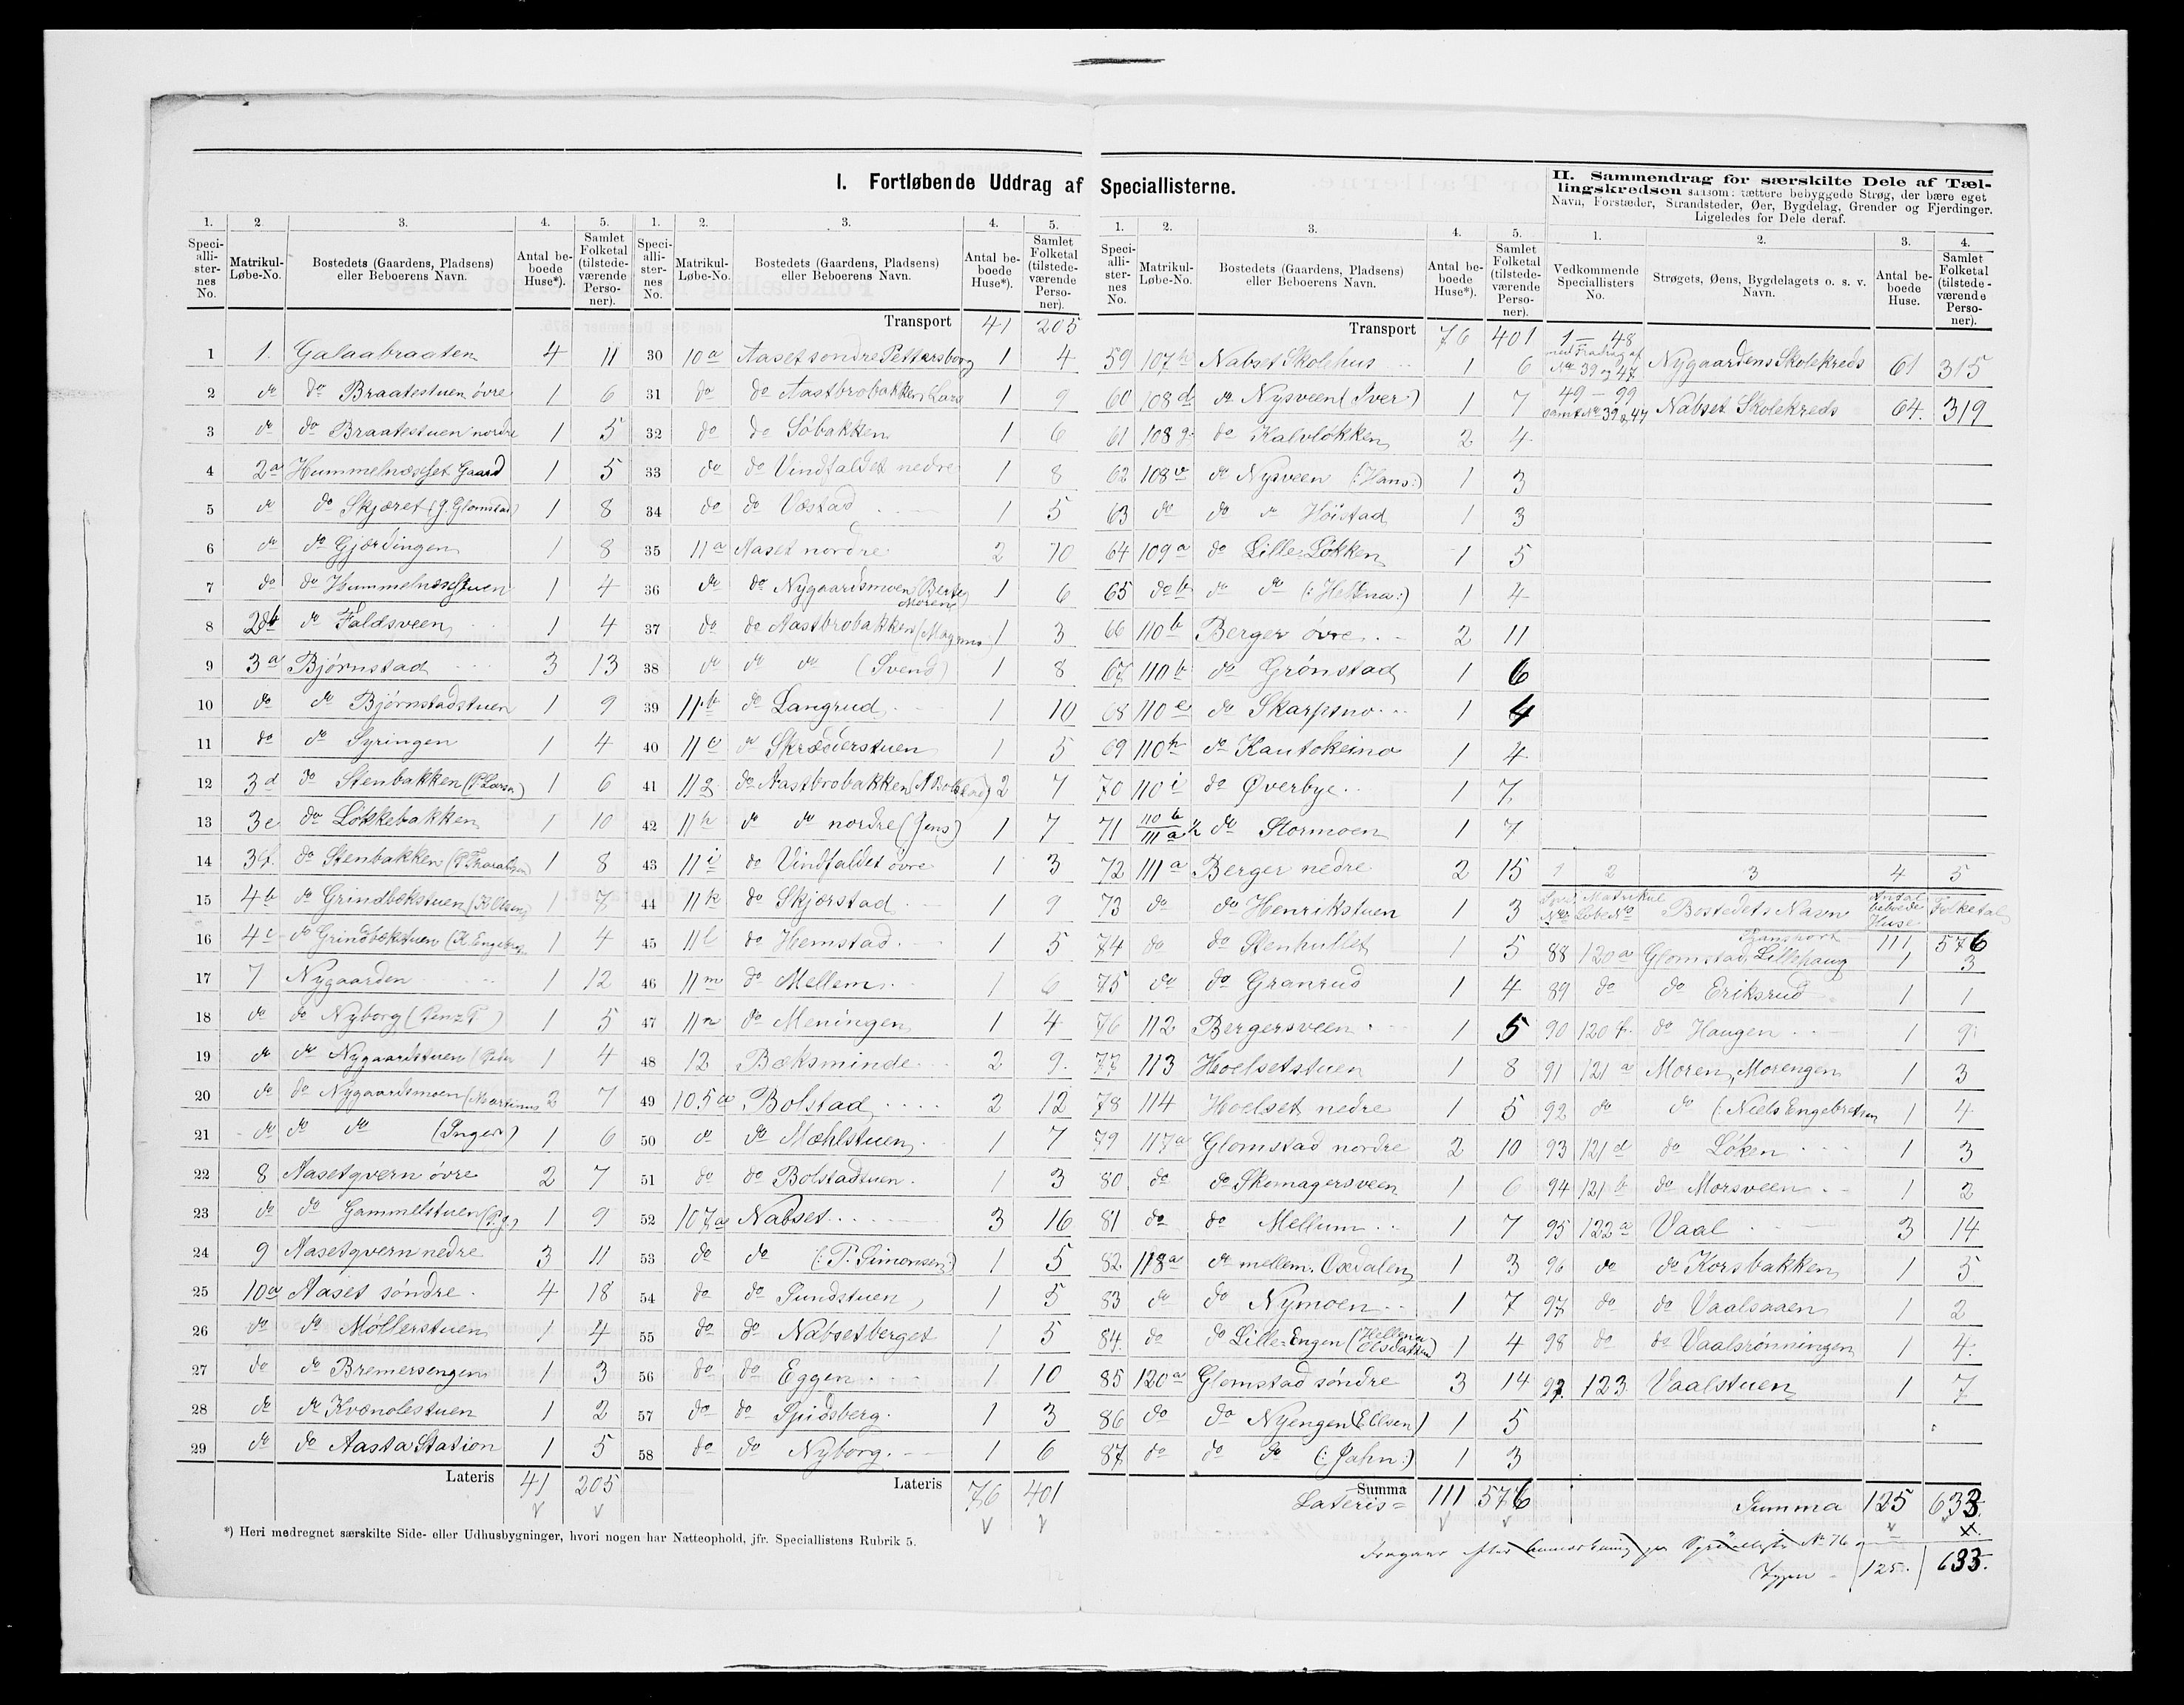 I. Fortløbende Uddrag af Speciallisterne.
II. Sammendrag for særskilte Dele af Tæl-
lingskredsen saasom: tættere bebyggede Strøg, der bære eget
Navn, Forstæder, Strandsteder, Øer, Bygdelag, Grender og Fjerdinger.
Ligeledes for Dele deraf.
1. 2. 3. 4. 5.
Speci-alli-ster-nes No. Matrikul-Løbe-No. Bostedets (Gaardens, Pladsens) eller Beboerens Navn. Antal be-boede Huse*). Samlet Folketal (tilstede-værende Perso-ner).
1 1. Galaabraaten 4 11
2 do do Braatestuen øvre 1 6
3 do do Braatestuen nordre 1 5
4 2a Hummelnæsset Gaard 1 5
5 do do Skjæret (J. Glomstad) 1 8
6 do do Gjærdingen 1 8
7 do do Hummelnæsstuen 1 4
8 2b do Faldsveen 1 4
9 3a Bjørnstad 3 13
10 do do Bjørnstadstuen 1 9
11 do do Syringen 1 4
12 3d do Stenbakken (P. Larsn) 1 6
13 3e do Løkkebakken 1 10
14 3f. do Stenbakken 1 8
15 4b do Grindbækstuen (K. Olsen) 1 7
16 4c do Grindbækstuen (K. Engebr 1 4
17 7 Nygaarden 1 12
18 do do Nyborg 1 5
19 do do Nygaardstuen (Peder 1 4
20 do do Nygaardsmoen (Martinus 2 7
21 do do do (Inger) 1 6
22 8 Aasetqvern øvre 2 7
23 do do Gammelstuen 1 9
24 9 Aasetqvern nedre 3 11
25 10a Aaset søndre 4 18
26 do do Møllerstuen 1 4
27 do do Bremersengen 1 3
28 do do Kvænolestuen 1 2
29 do do Aasta Station 1 5
Lateris 41 205
*) Heri medregnet særskilte Side- eller Udhusbygninger, hvori nogen har Natteophold, jfr. Speciallistens Rubrik 5.
1. 2. 3. 4. 5.
Speci-alli-ster-nes No. Matrikul-Løbe-No. Bostedets (Gaardens, Pladsens) eller Beboerens Navn. Antal be-boede Huse*). Samlet Folketal (tilstede-værende Perso-ner).
Transport 41 205
30 10a Aaset søndre Pettersborg 1 4
31 do do Aastbrobakken (Lars 1 9
32 do do Søbakken 1 6
33 do do Vindfaldet nedre 1 8
34 do do Væstad 1 5
35 11a Aaset nordre 2 10
36 do do Nygaardsmoen (Berte Moren 1 6
37 do do Aastbrobakken (Magnus 1 3
38 do do do (Svend) 1 8
39 11b do Langrud 1 10
40 11c do Skrædderstuen 1 5
41 11g do Aastbrobakken (A Bolstad) 2 7
42 11h do do nordre (Jens) 1 7
43 11i do Vindfaldet øvre 1 3
44 11k do Skjørstad 1 9
45 11l do Hemstad 1 5
46 11m do Mellem 1 6
47 11n do Meningen 1 4
48 12 Bæksminde 2 9.
49 105a Bolstad 2 12
50 do do Mæhlstuen 1 7
51 do do Bolstadtuen 1 3
52 107a Nabset 3 16
53 do do (: P. Simonsen:) 1 5
54 do do Sundstuen 1 5
55 do do Nabsetberget 1 5
56 do do Eggen 1 10
57 do do Spidsberg. 1 3
58 do do Nyborg. 1 6
Lateris 76 401
1. 2. 3. 4. 5.
Speci-alli-ster-nes No. Matrikul-Løbe-No. Bostedets (Gaardens, Pladsens) eller Beboerens Navn. Antal be-boede Huse*). Samlet Folketal (tilstede-værende Perso-ner).
Transport 76 401
59 107b Nabset Skolehus 1 6
60 108d do Nysveen (Iver) 1 7
61 108g. do Kalvløkken 2 4
62 108e do Nysveen (: Hans:) 1 3
63 do do do Høistad 1 3
64 109a do Lille-Løkken 1 5
65 do b do do (: Hellena:) 1 4
66 110b Berger øvre 2 11
67 110b do Grønstad 1 6
68 110e do Skarpsno 1 4
69 110h do Kautokeino 1 4
70 110i do Øverbye 1 7
71 110b 111a do Stormoen 1 7
72 111a Berger nedre 2 15
73 do do Henrikstuen 1 3
74 do do Stenhullet 1 5
75 do do Granrud 1 4
76 112 Bergersveen 1 5
77 113 Hoelsetstuen 1 8
78 114 Hoelset nedre 1 5
79 117a Glomstad nordre 2 10
80 do do Skomagersveen 1 6
81 do do Mellum 1 7
82 118a do mellem. Oxdalen 1 3
83 do do Nymoen 1 7
84. do do Lille-Engen (Hellena Olsdatter) 1 4
85 120a Glomstad søndre 3 14
86 do do Nyengen (E. Olsen) 1 5
87 do do do (: Jahn:) 1 3
Summa Lateris = 111 576
1. 2. 3. 4.
Vedkommende Speciallisters No. Strøgets, Øens, Bygdelagets o. s. v. Navn. Antal be-boede Huse. Samlet Folketal (tilstede-værende Perso-ner).
1 — 48 med Fradrag af No 39 og 47 Nygaardens Skolekreds 61 315
49 — 99 samt No 39 & 47 Nabset Skolekreds 64. 319
1 2 3 4 5
Matrikul LøbeNo Bostedets Navn Antal beboede Huse Folketal
Transport 111 576
88 120a Glomstad, Lillehaug 1 3
89 do do Eriksrud 1 1
90 120f. do Haugen 1 9
91 121a Moren, Morengen 1 3
92 do do (: Niels Engebretsen 1 4
93 121d do Løken 1 3
94 121b do Morsveen 1 2
95 122a Vaal 3 14
96 do do Korsbakken 1 5
97 do do Vaalsaaen 1 2
98 do do Vaalsrønningen 1 4.
99. 123. Vaalstuen 1 7
Summa 125 633.
No 76
125. 633.